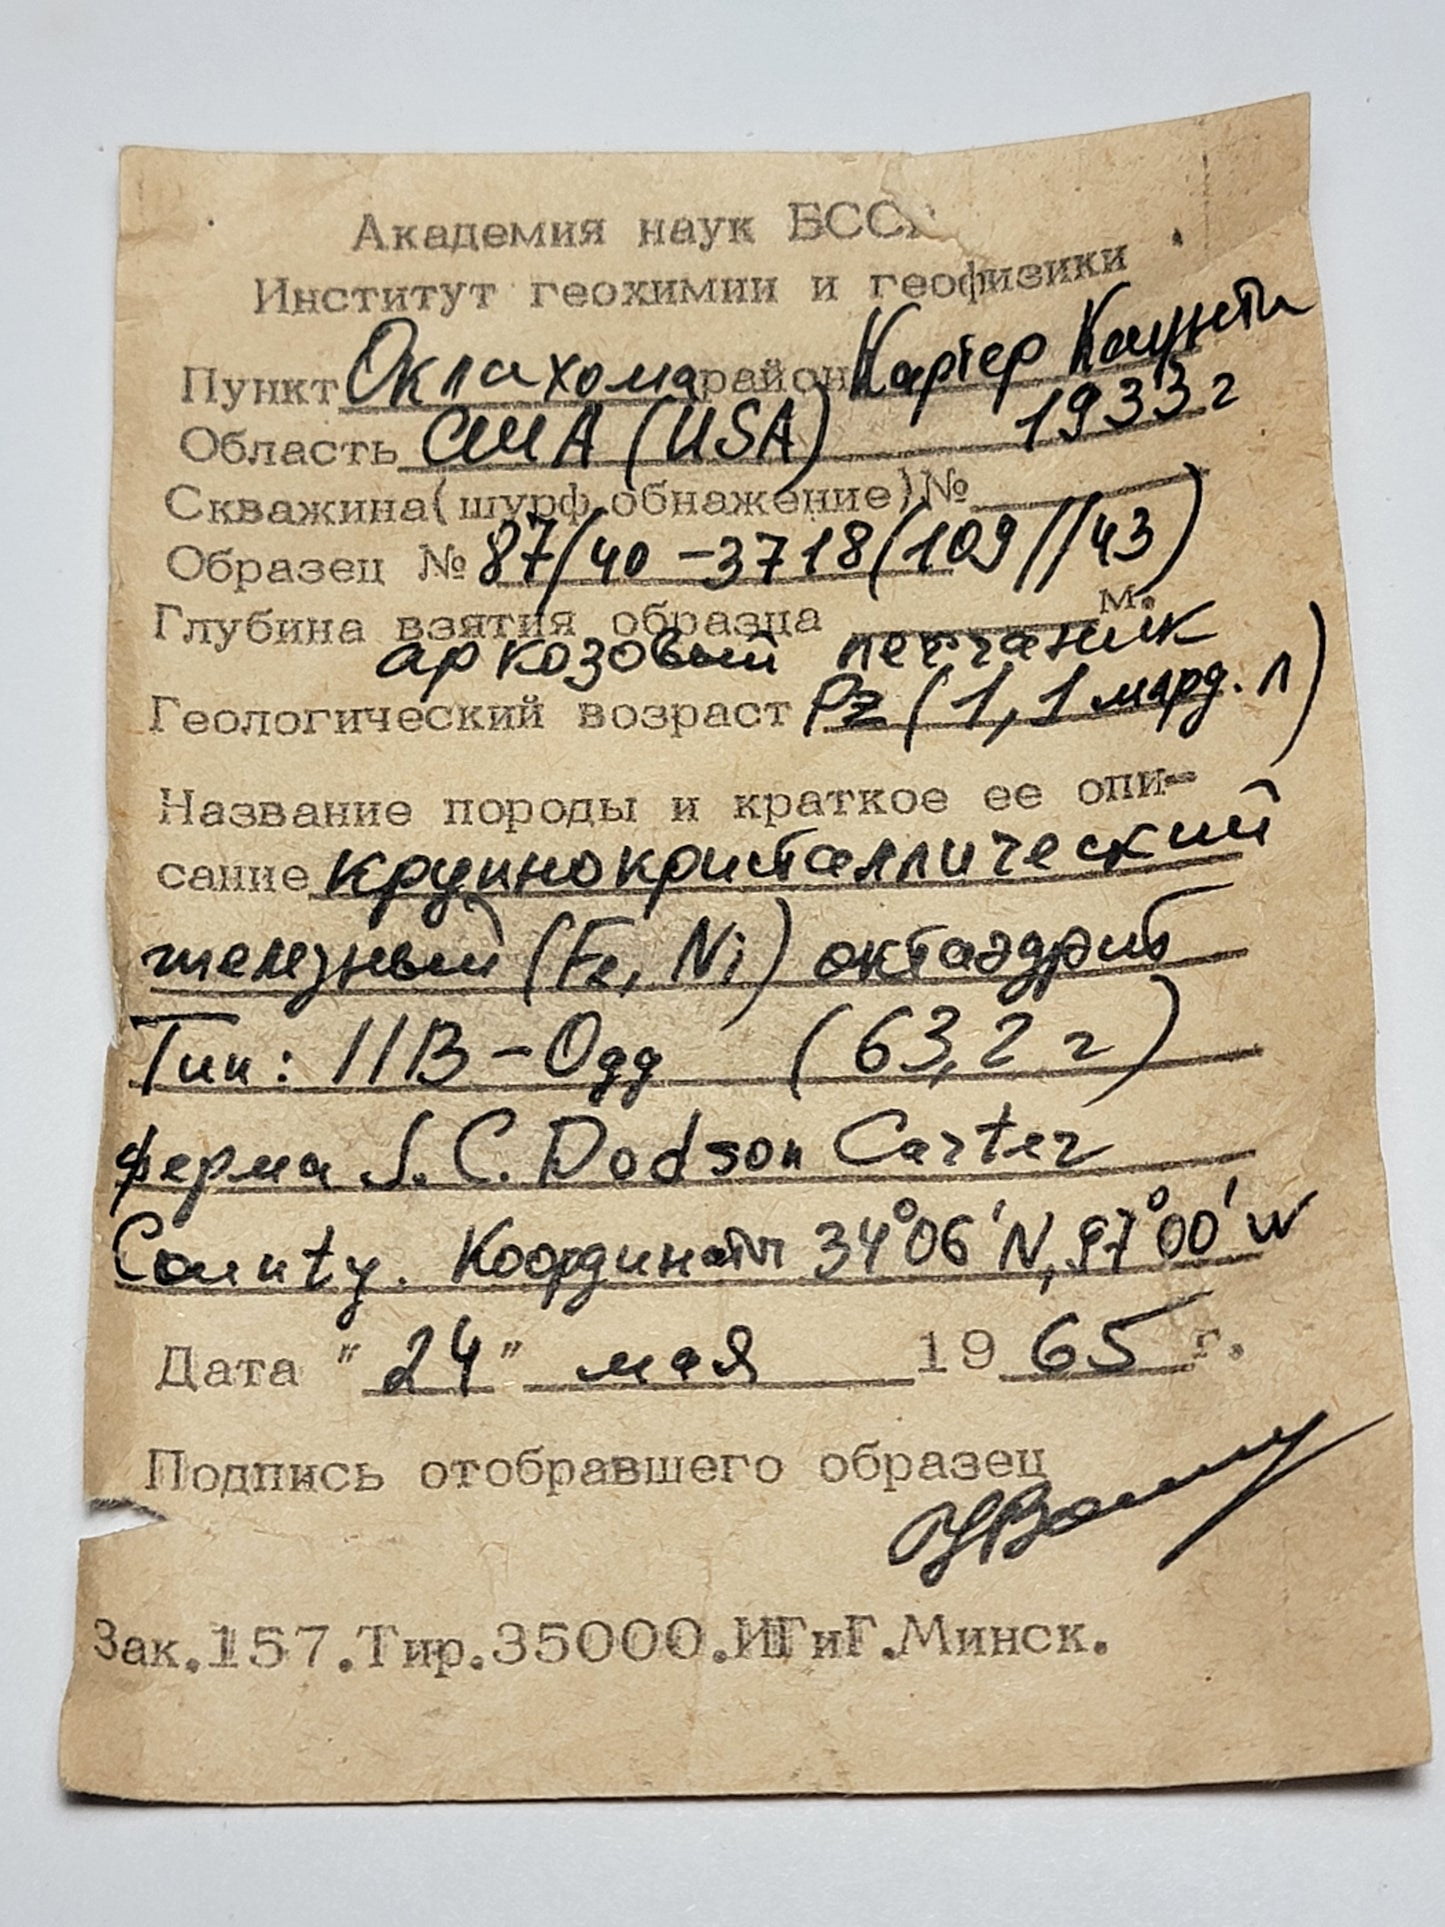 Академия наук БССР
Институт геохимии и геофизики
Пункт Оклахома район Картер Каунти
Область США (USA) 1933 г
Скважина(шурф,обнажение)№
Образец № 87/40-3718(109//43)
Глубина взятия образца м.
аркозовый песчаник
Геологический возраст Pz (1,1 млрд. л)
Название породы и краткое ее опи-
сание крупнокристаллический
железный (Fe, Ni) октаэдрит
Тип: IIB-Одд (63,2 г)
ферма S. C. Dodson Carter
County. Координаты 34°06'N, 97°00'W
Дата "24" мая 1965 г.
Подпись отобравшего образец
Зак.157.Тир.35000.ИГиГ.Минск.